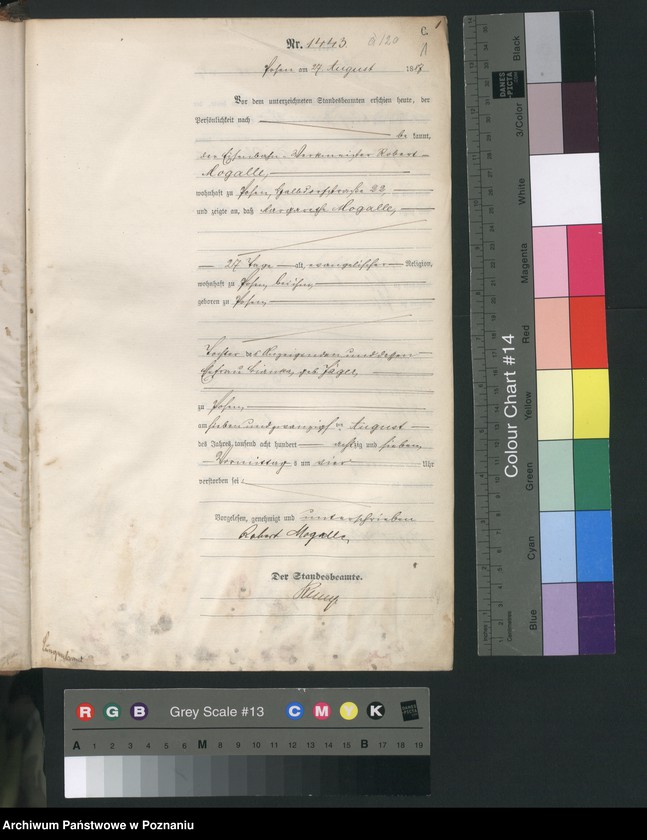 C.
Nr. 1443.
Posen am 27 August 188
Vor dem unterzeichneten Standesbeamten erschien heute, der
Persönlichkeit nach
be kannt,
der Eisenbahn-Werkmeister Robert
Mogalle,
wohnhaft zu Posen, 22,
und zeigte an, daß Margarethe Mogalle,
27 Tage alt, evangelischer Religion,
wohnhaft zu Posen bei ihm,
geboren zu Posen,
Tochter des Anzeigenden und dessen
Ehefrau Bianca, geb. Jäger,
zu Posen,
am sieben und zwanzigsten August
des Jahres tausend acht hundert achtzig und sieben,
Vormittags um vier Uhr
verstorben sei
Vorgelesen, genehmigt und unterschrieben
Robert Mogalle,
Der Standesbeamte.
Black
3/Color
White
Magenta
Red
Yellow
Green
Cyan
Blue
Colour Chart #14
DANES-PICTA
Centimetres
Inches
R G B Grey Scale #13 C M Y K
A 1 2 3 4 5 6 M 8 9 10 11 12 13 14 15 B 17 18 19
Archiwum Państwowe w Poznaniu